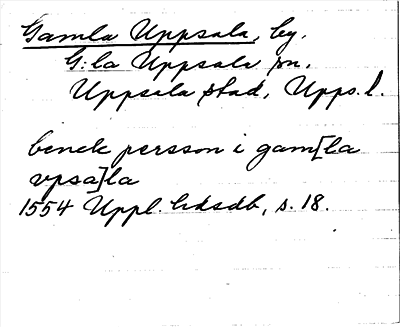 Gamla Uppsala, by.
G:la Uppsala sn.
Uppsala stad, Upps. l.
benek persson i gam[la
vpsa]la
1554 Uppl. hdsdb, s. 18.